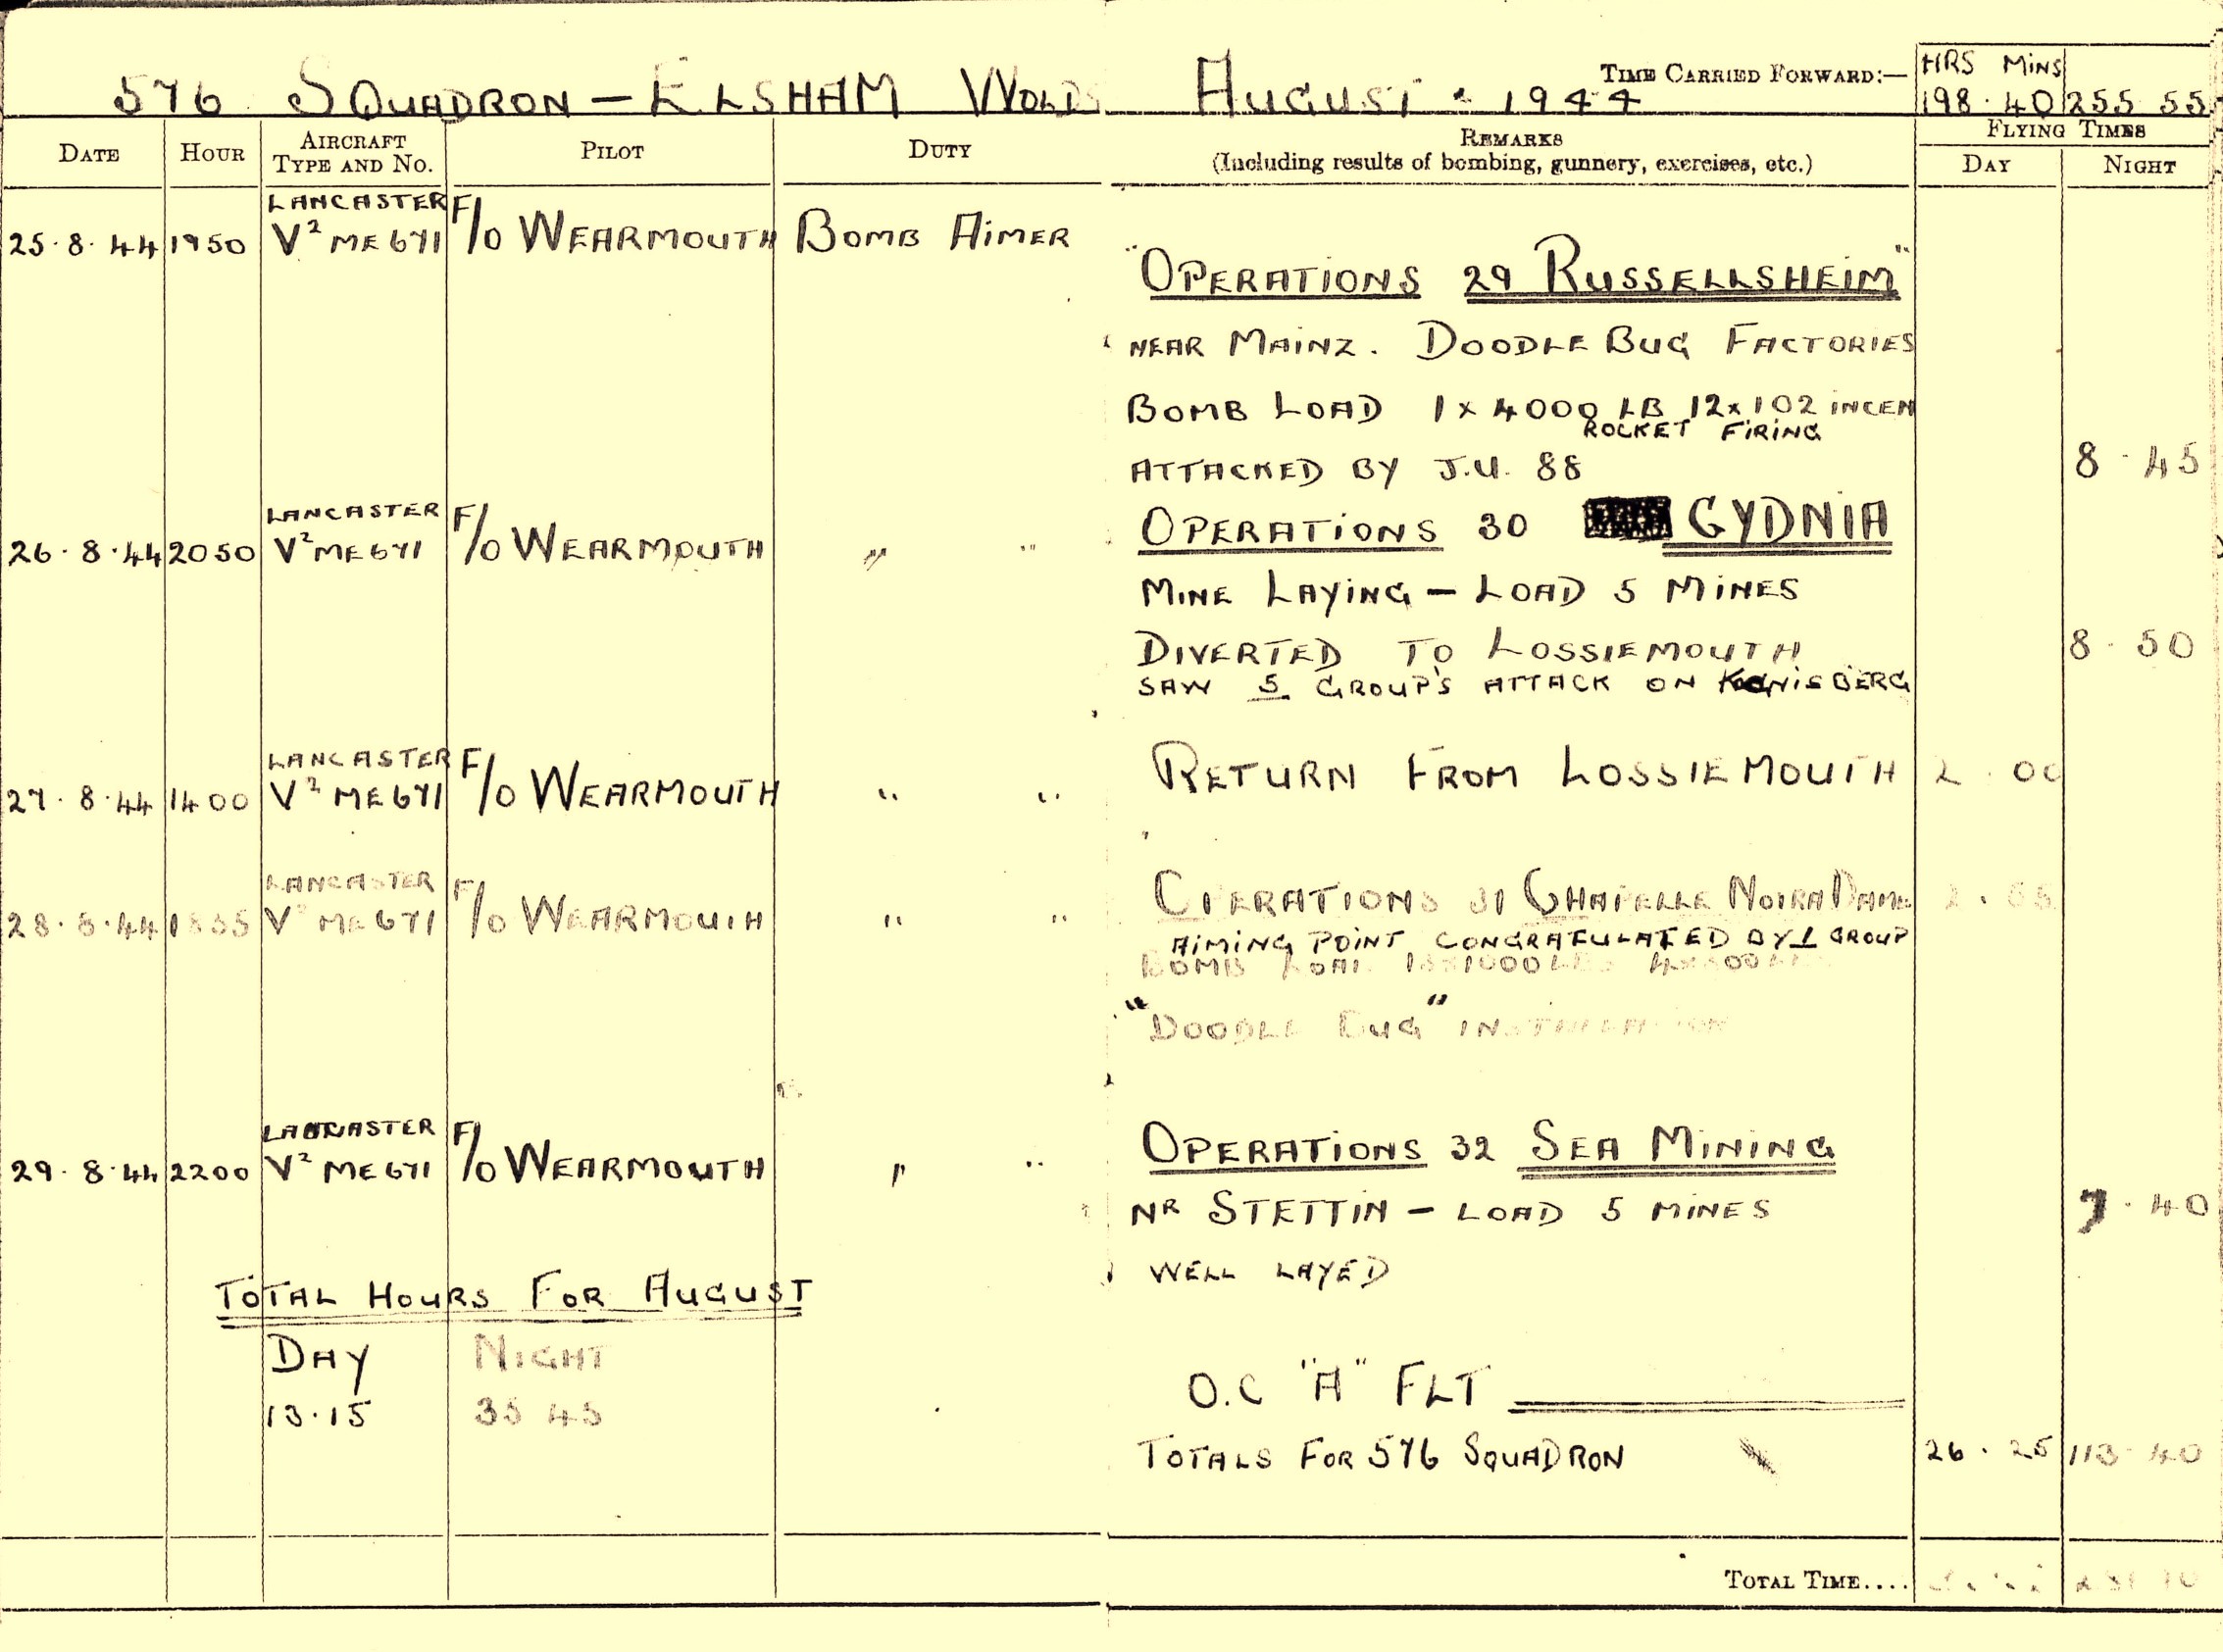 576 SQUADRON – ELSHAM WOLDS AUGUST : 1944 TIME CARRIED FORWARD:— HRS MINS
198·40 255 55
DATE HOUR AIRCRAFT TYPE AND NO. PILOT DUTY REMARKS FLYING TIMES
(Including results of bombing, gunnery, exercises, etc.) DAY NIGHT
25·8·44 1950 LANCASTER V² ME671 F/O WEARMOUTH BOMB AIMER
"OPERATIONS 29 RUSSELLSHEIM"
NEAR MAINZ. DOODLE BUG FACTORIES
BOMB LOAD 1 x 4000 LB 12x102 INCEN
ROCKET FIRING
ATTACKED BY J.U. 88 8·45
26·8·44 2050 LANCASTER V² ME671 F/O WEARMOUTH " " OPERATIONS 30 GYDNIA
MINE LAYING – LOAD 5 MINES
DIVERTED TO LOSSIEMOUTH 8·50
SAW 5 GROUP'S ATTACK ON KONISBERG
27·8·44 1400 LANCASTER V² ME671 F/O WEARMOUTH " " RETURN FROM LOSSIEMOUTH 2.00
28·8·44 1835 LANCASTER V² ME671 F/O WEARMOUTH " " OPERATIONS 31 CHAPELLE NOTRA DAME
AIMING POINT CONGRATULATED BY 1 GROUP
BOMB LOAD
"DOODLE BUG" INSTALLATION
29·8·44 2200 LANCASTER V² ME671 F/O WEARMOUTH " " OPERATIONS 32 SEA MINING
NR STETTIN – LOAD 5 MINES 7·40
WELL LAYED
TOTAL HOURS FOR AUGUST
DAY NIGHT
13·15 35 45
O.C "A" FLT
TOTALS FOR 576 SQUADRON 26·25 113·40
TOTAL TIME....